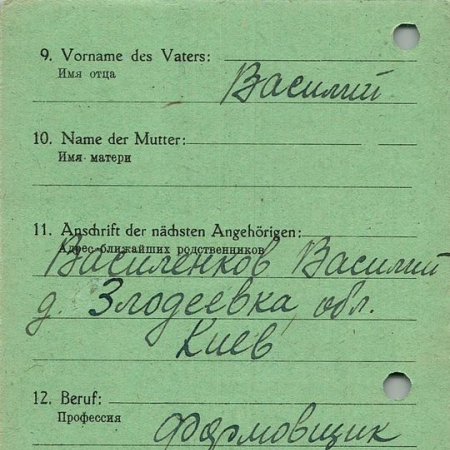 9. Vorname des Vaters:
Имя отца
Василий
10. Name der Mutter:
Имя матери
11. Anschrift der nächsten Angehörigen:
Адрес ближайших родственников
Василенков Василий
д. Злодеевка, обл.
Киев
12. Beruf:
Профессия
Формовщик